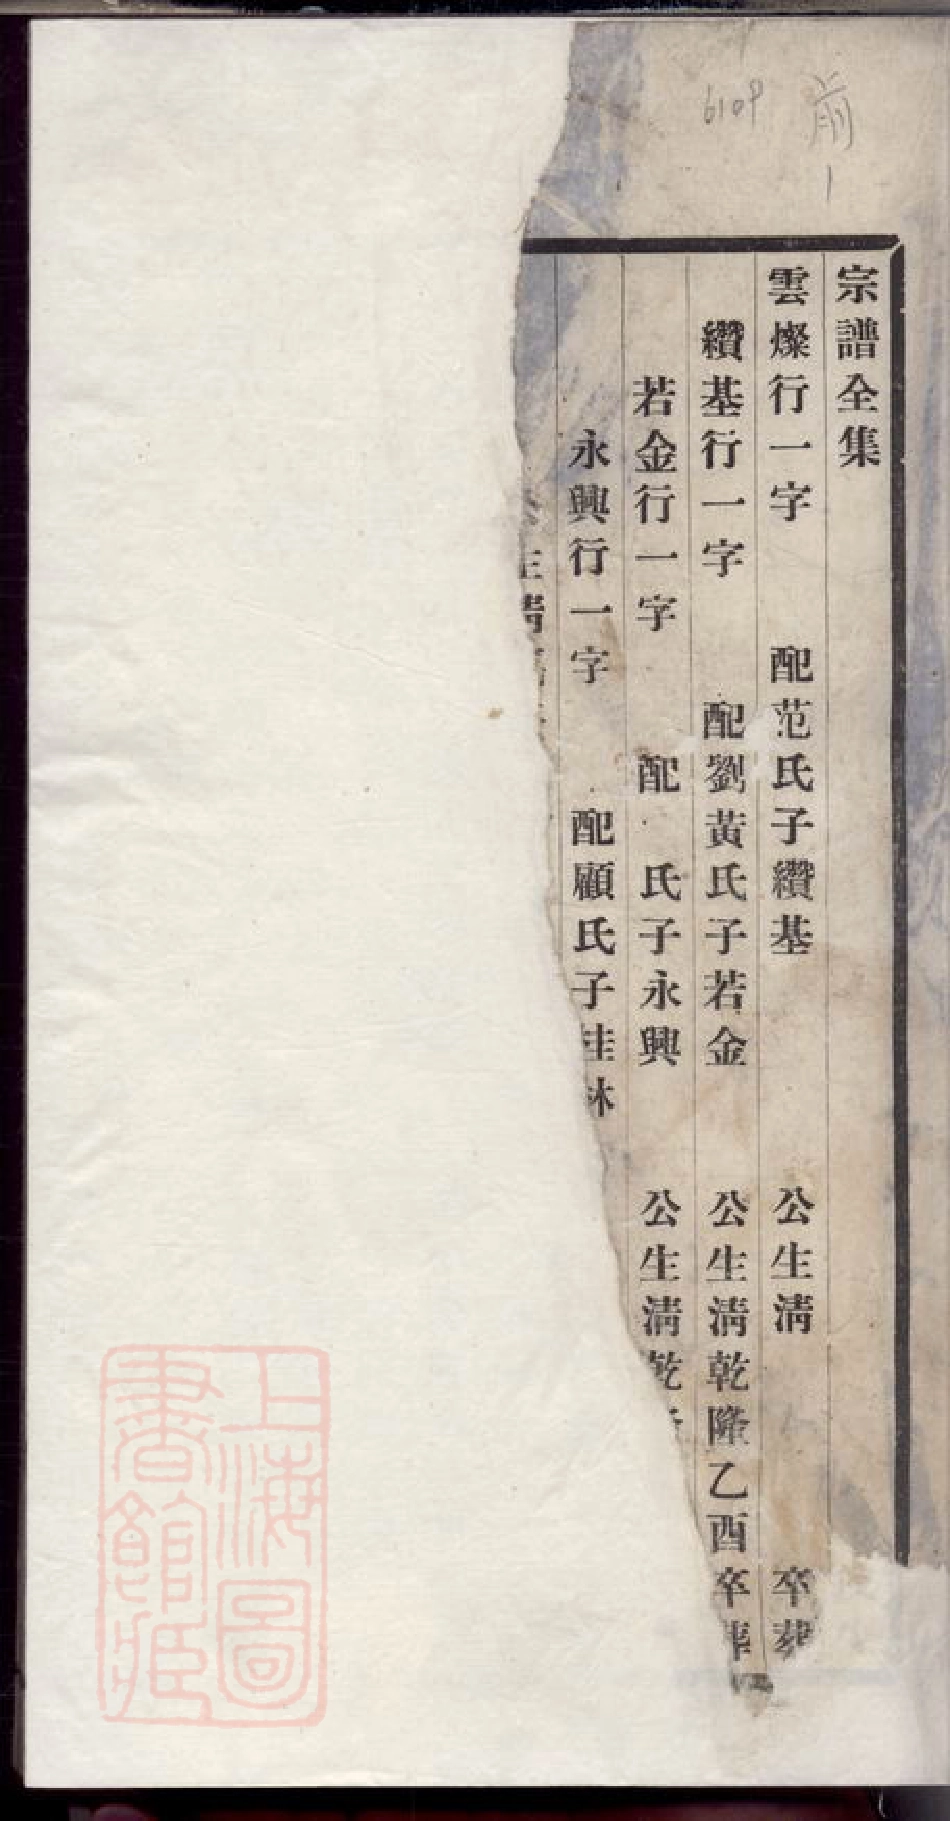 6109
前
1
宗譜全集
雲燦行一字 配范氏子纘基 公生淸 卒葬
纘基行一字 配劉黃氏子若金 公生淸乾隆乙酉卒葬
若金行一字 配 氏子永興 公生淸乾
永興行一字 配顧氏子桂林
生淸
上海圖
書館藏